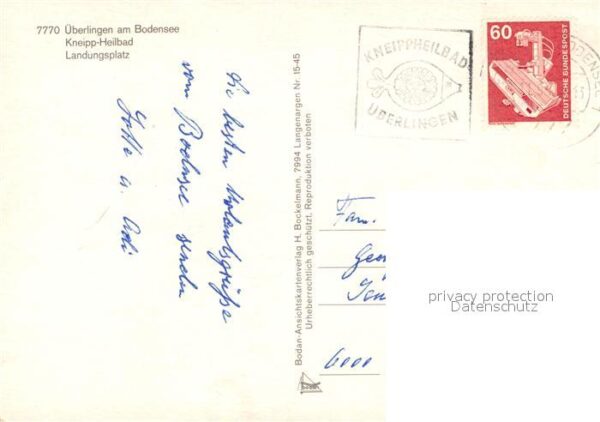 7770 Überlingen am Bodensee
Kneipp-Heilbad
Landungsplatz
KNEIPPHEILBAD
ÜBERLINGEN
60
DEUTSCHE BUNDESPOST
BODENSEE 1
Die besten Urlaubsgrüße
vom Bodensee senden
Lotte u. Adi
Bodan-Ansichtskartenverlag H. Bockelmann, 7994 Langenargen Nr. 15-45
Urheberrechtlich geschützt. Reproduktion verboten
Fam.
6000
privacy protection
Datenschutz